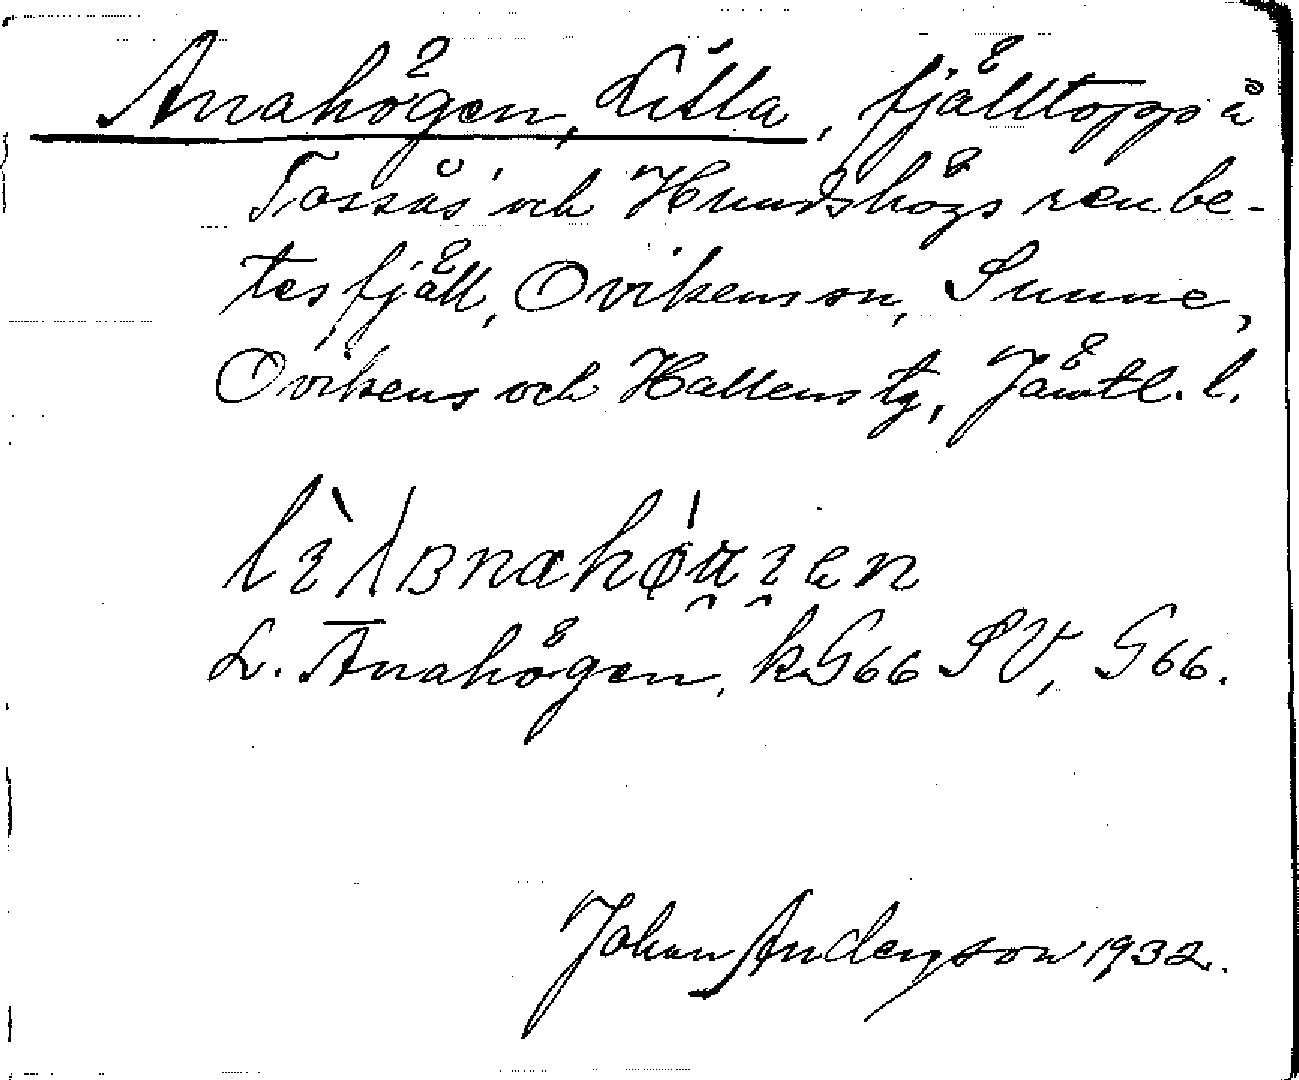 Anahögen, Lilla, fjälltopp å
Tossås' och Hundshögs renbe-
tesfjäll, Ovikens sn, Sunne,
Ovikens och Hallens tg, Jämtl. l.
L. Anahögen, kG66 SV, G66.
Johan Anderson 1932.